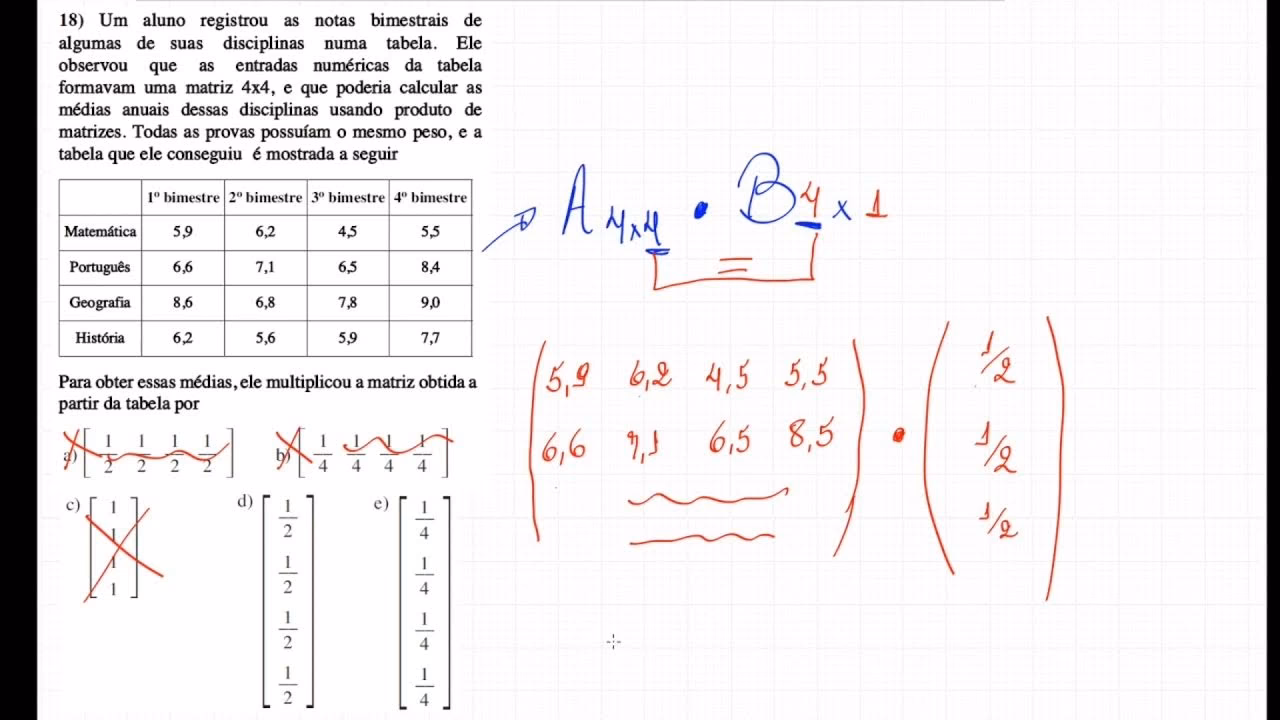 18) Um aluno registrou as notas bimestrais de
algumas de suas disciplinas numa tabela. Ele
observou que as entradas numéricas da tabela
formavam uma matriz 4x4, e que poderia calcular as
médias anuais dessas disciplinas usando produto de
matrizes. Todas as provas possuíam o mesmo peso, e a
tabela que ele conseguiu é mostrada a seguir
1º bimestre 2º bimestre 3º bimestre 4º bimestre
Matemática 5,9 6,2 4,5 5,5
Português 6,6 7,1 6,5 8,4
Geografia 8,6 6,8 7,8 9,0
História 6,2 5,6 5,9 7,7
Para obter essas médias, ele multiplicou a matriz obtida a
partir da tabela por
a) [1/2 1/2 1/2 1/2]
b) [1/4 1/4 1/4 1/4]
c) [1
1
1
1]
d) [1/2
1/2
1/2
1/2]
e) [1/4
1/4
1/4
1/4]
A 4x4 • B 4 x 1
=
5,9 6,2 4,5 5,5
6,6 7,1 6,5 8,5
•
1/2
1/2
1/2